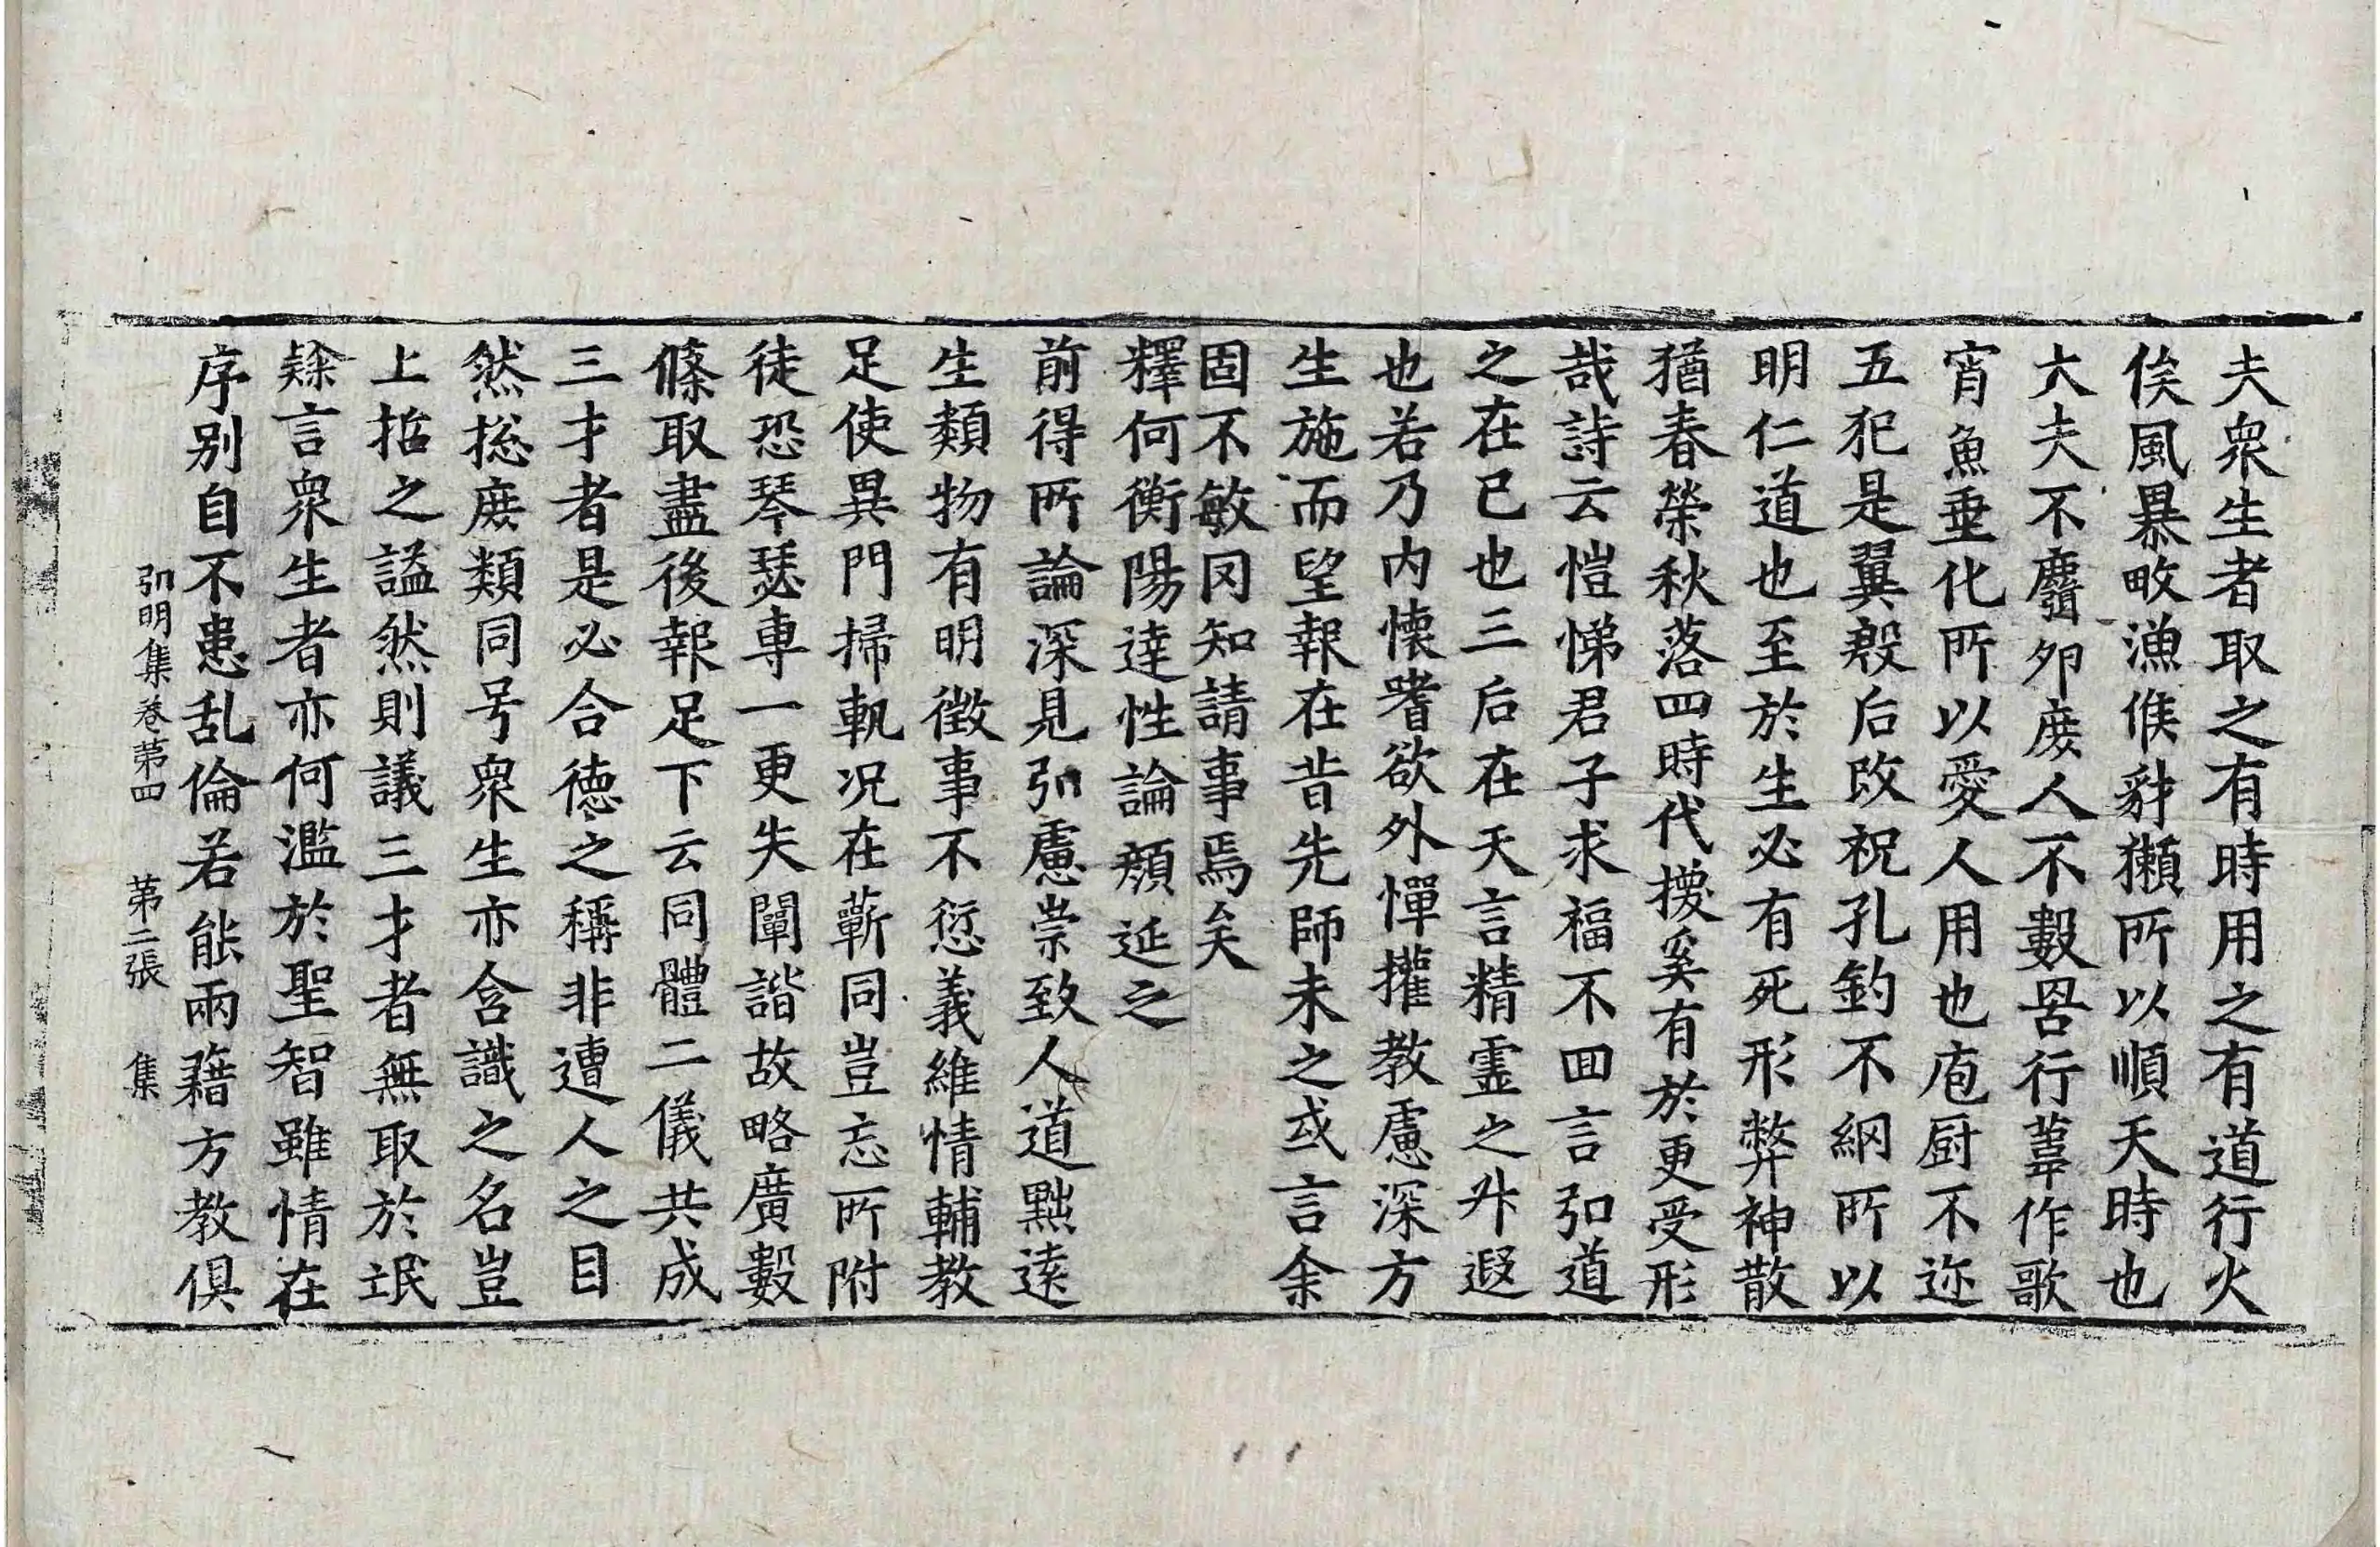 夫衆生者取之有時用之有道行火
俟風暴畋漁候豺獺所以順天時也
大夫不麛夘庶人不數罟行葦作歌
宵魚垂化所以愛人用也庖厨不迩
五犯是翼殷后改祝孔釣不綱所以
明仁道也至於生必有死形弊神散
猶春榮秋落四時代換奚有於更受形
哉詩云愷悌君子求福不回言弘道
之在已也三后在天言精霊之升遐
也若乃内懷嗜欲外憚攉教慮深方
生施而望報在昔先師未之或言余
固不敏罔知請事焉矣
釋何衡陽達性論顔延之
前得所論深見弘慮崇致人道黜遠
生類物有明徵事不愆義維情輔教
足使異門掃軌况在蘄同豈忘所附
徒恐琴瑟專一更失闡諧故略廣數
條取盡後報足下云同體二儀共成
三才者是必合德之稱非遭人之目
然捴庶類同号衆生亦含識之名豈
上招之謚然則議三才者無取於氓
隸言衆生者亦何濫於聖智雖情在
序别自不患乱倫若能兩藉方教俱
弘明集卷第四 第二張 集